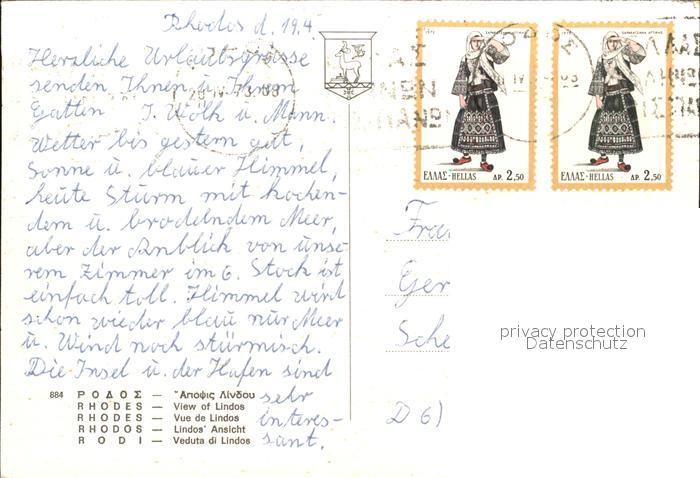 Rhodos d. 19.4
Herzliche Urlaubsgrüsse
senden Ihnen u. Ihrem
Gatten J. Wölk u. Mann.
Wetter bis gestern gut,
Sonne u. blauer Himmel,
heute Sturm mit kochen-
dem u. brodelndem Meer,
aber der Anblick von unse-
rem Zimmer im 6. Stock ist
einfach toll. Himmel wird
schon wieder blau nur Meer
u. Wind noch stürmisch.
Die Insel u. der Hafen sind
sehr
interes-
sant.
884 ΡΟΔΟΣ — Ἄποψις Λίνδου
RHODES — View of Lindos
RHODES — Vue de Lindos
RHODOS — Lindos' Ansicht
RODI — Veduta di Lindos
ΕΛΛΑΣ-HELLAS ΔΡ. 2,50
ΕΛΛΑΣ-HELLAS ΔΡ. 2,50
Fra
Ger
Sche
D 6)
privacy protection
Datenschutz